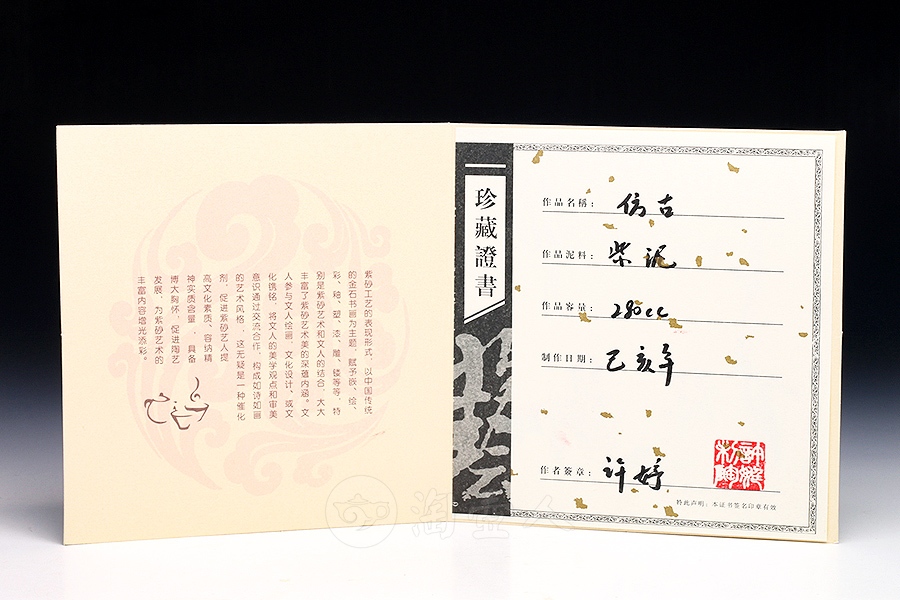 紫砂工艺的表现形式，以中国传统
的金石书画为主题，赋予嵌、绘、
彩、釉、塑、漆、雕、镂等等，特
别是紫砂艺术和文人的结合，大大
丰富了紫砂艺术美的深蕴内涵。文
人参与文人绘画，文化设计，或文
化镌铭，将文人的美学观点和审美
意识通过交流合作，构成如诗如画
的艺术风格，这无疑是一种催化
剂，促进紫砂艺人提
高文化素质、容纳精
神实质含量，具备
博大胸怀，促进陶艺
发展，为紫砂艺术的
丰富内容增光添彩。
珍藏證書
作品名稱：仿古
作品泥料：柴泥
作品容量：280cc
制作日期：乙亥年
作者簽章：许婷
特此声明：本证书签名印章有效
淘壶人